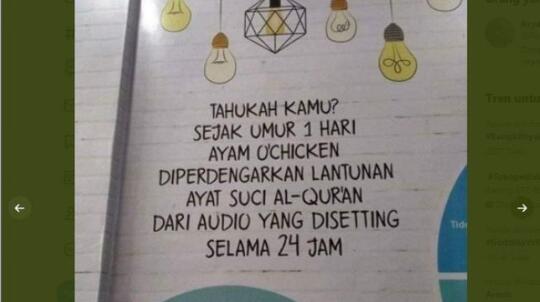 TAHUKAH KAMU?
SEJAK UMUR 1 HARI
AYAM O'CHICKEN
DIPERDENGARKAN LANTUNAN
AYAT SUCI AL-QUR'AN
DARI AUDIO YANG DISETTING
SELAMA 24 JAM